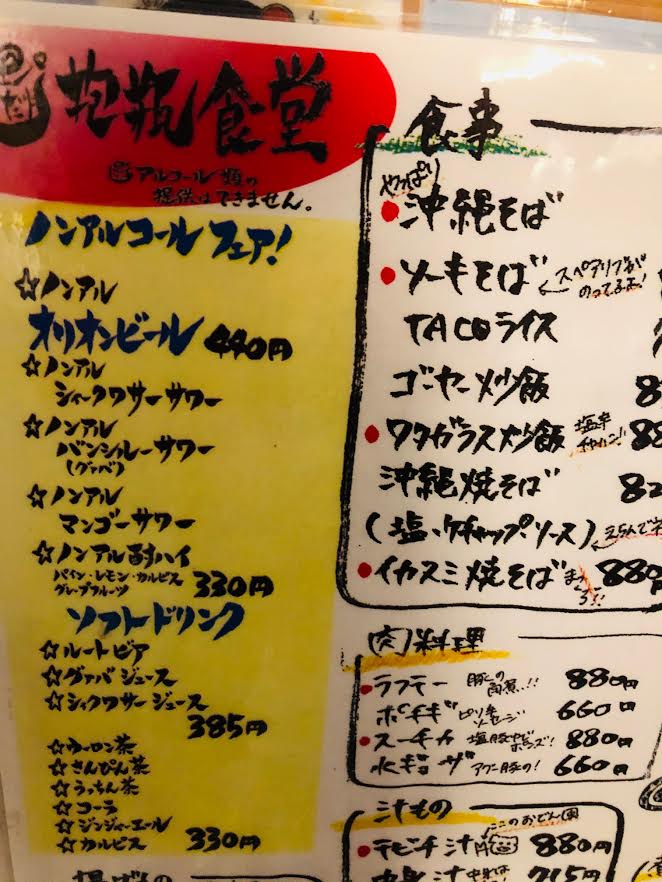 抱瓶食堂
アルコール類の
提供はできません。
ノンアルコールフェア!
☆ノンアル
オリオンビール 440円
☆ノンアル
シークワサーサワー
☆ノンアル
バンシルーサワー
(グァバ)
☆ノンアル
マンゴーサワー
☆ノンアル酎ハイ
パイン・レモン・カルピス
グレープフルーツ 330円
ソフトドリンク
☆ルートビア
☆グァバジュース
☆シィクワサージュース
385円
☆ウーロン茶
☆さんぴん茶
☆うっちん茶
☆コーラ
☆ジンジャーエール
☆カルピス 330円
揚げもの
食事
やっぱり
●沖縄そば
●ソーキそば ←スペアリブが
のってるヨ!
TACOライス
ゴーヤー炒飯 8
●ワタガラス炒飯 塩辛
チャーハン! 88
沖縄焼そば 82
(塩・ケチャップ・ソース) ←えらんで
●イカスミ焼そば 880円
肉料理
●ラフテー 豚の
角煮..!! 880円
ポチギ ピリ辛
ソーセージ 660円
●スーチカ 880円
水ギョーザ アグー豚の! 660円
汁もの
ここのおでん
●テビチ汁 880円
中身汁 715円